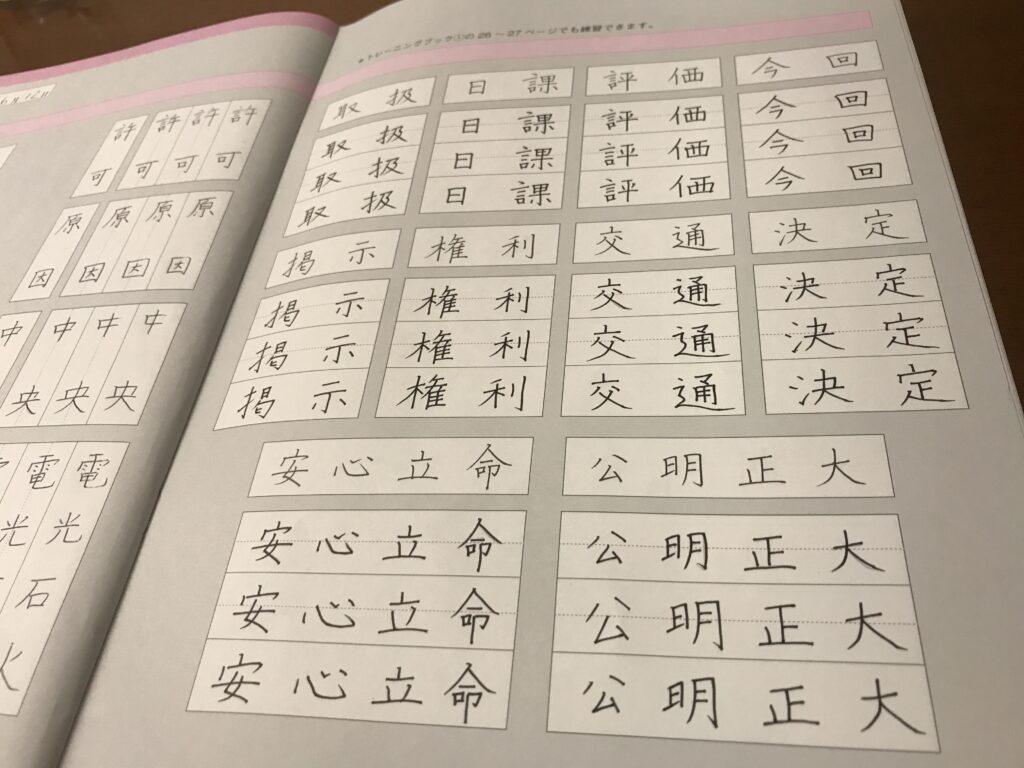 許可
許可
許可
許可
原因
原因
原因
原因
中央
中央
中央
中央
電光石火
電光
●トレーニングブック①の 26～27 ページでも練習できます。
取扱 日課 評価 今回
取扱 日課 評価 今回
取扱 日課 評価 今回
取扱 日課 評価 今回
掲示 権利 交通 決定
掲示 権利 交通 決定
掲示 権利 交通 決定
掲示 権利 交通 決定
安心立命 公明正大
安心立命 公明正大
安心立命 公明正大
安心立命 公明正大